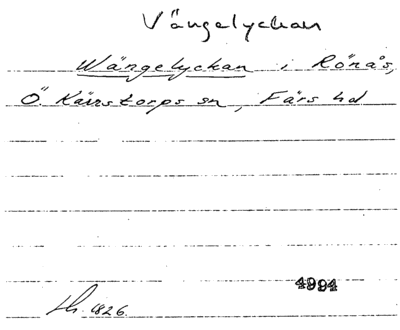 Vängelyckan
Wängelyckan i Rönås,
Ö. Kärrstorps sn, Färs hd
4994
1826.